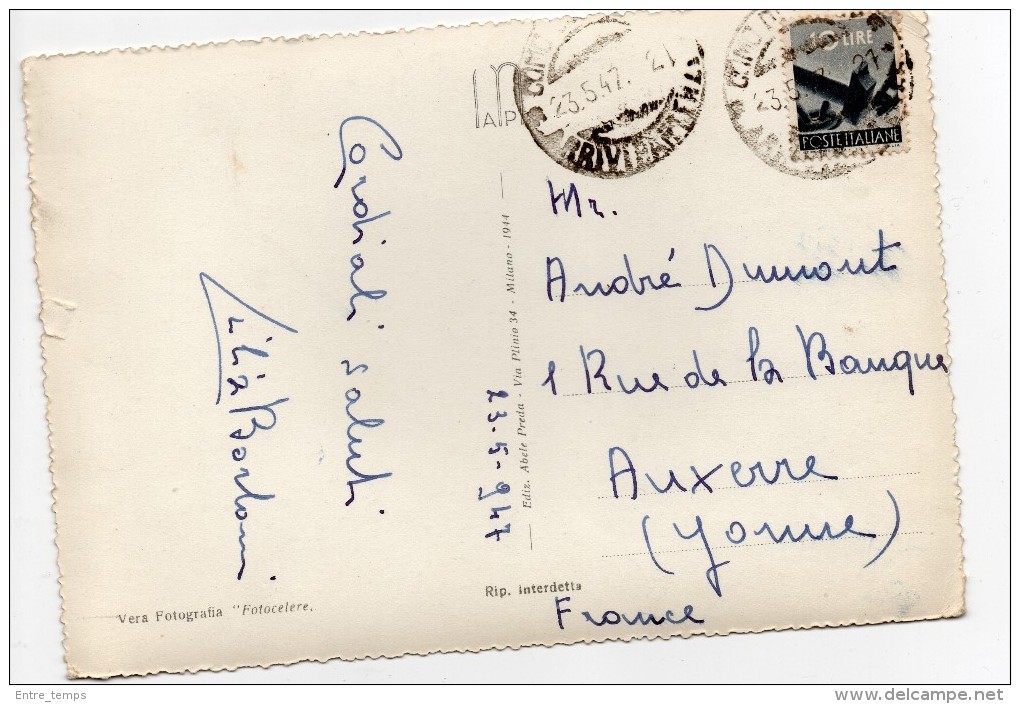 Cordiali saluti
Lilia Bortoni
23-5-947
Vera Fotografia "Fotocelere,
Ediz. Abele Preda - Via Plinio 34 - Milano - 1944
Rip. Interdetta
COMO
23.5.47. 21
ARRIVI PARTENZE
COMO
23.5.47. 21
10 LIRE
POSTE ITALIANE
Mr.
André Dumont
1 Rue de la Banque
Auxerre
(Yonne)
France
Entre_temps
www.delcampe.net